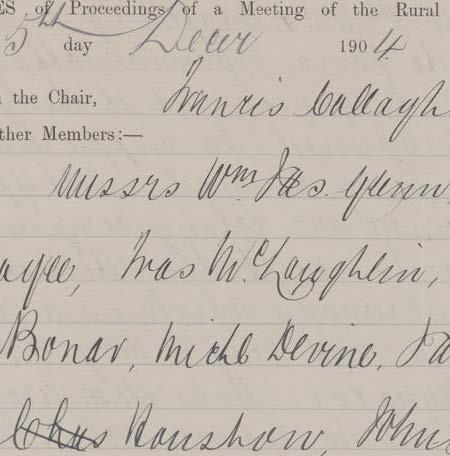 ES of Proceedings of a Meeting of the Rural
5th day Decr 1904
n the Chair, Francis Callagh
ther Members:—
Messrs Wm Jas. Gunn
agee, Fras McLaughlin,
Bonar, Michl Devine, Ja
Chas Houshow, John